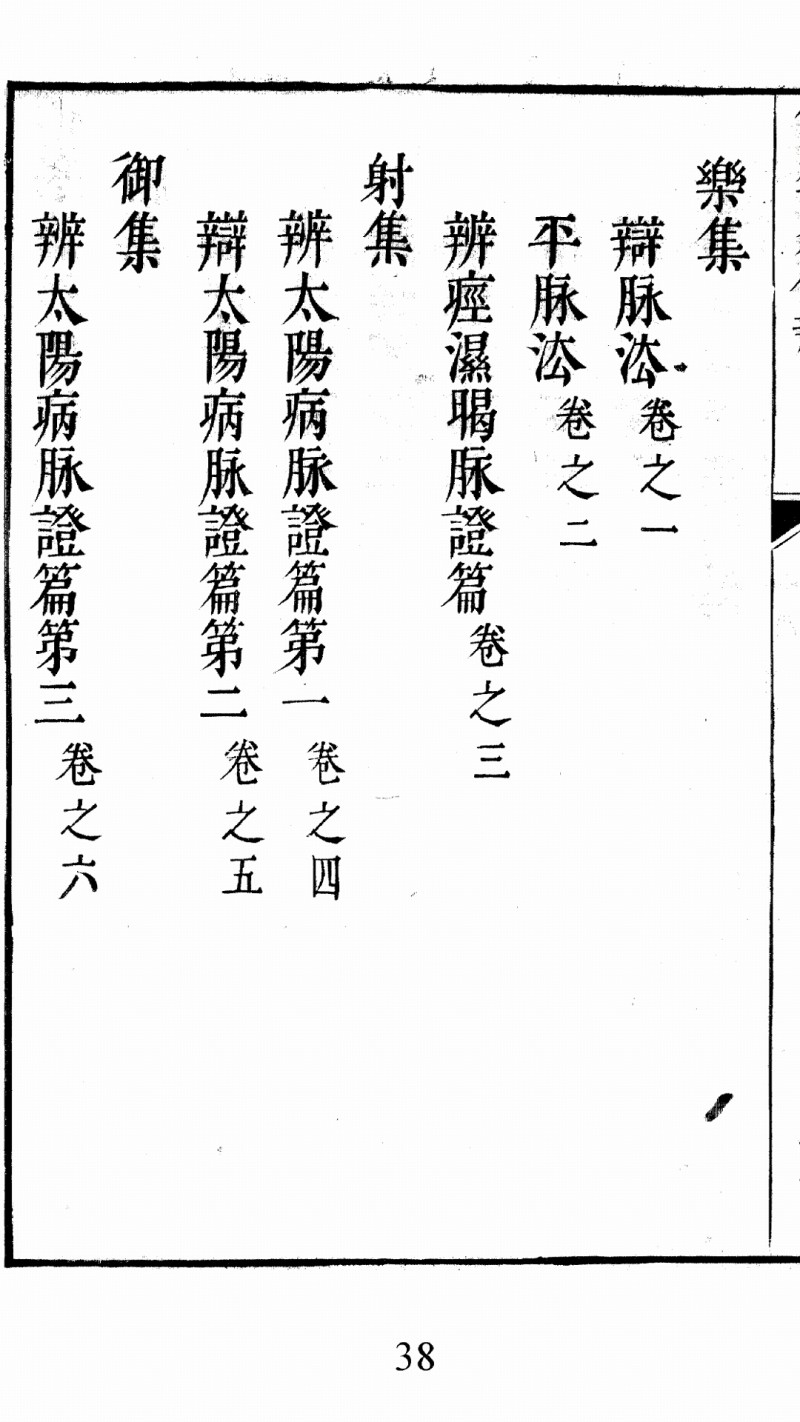 樂集
辯脉法卷之一
平脉法卷之二
辨痙濕暍脉證篇卷之三
射集
辨太陽病脉證篇第一卷之四
辯太陽病脉證篇第二卷之五
御集
辨太陽病脉證篇第三卷之六
38